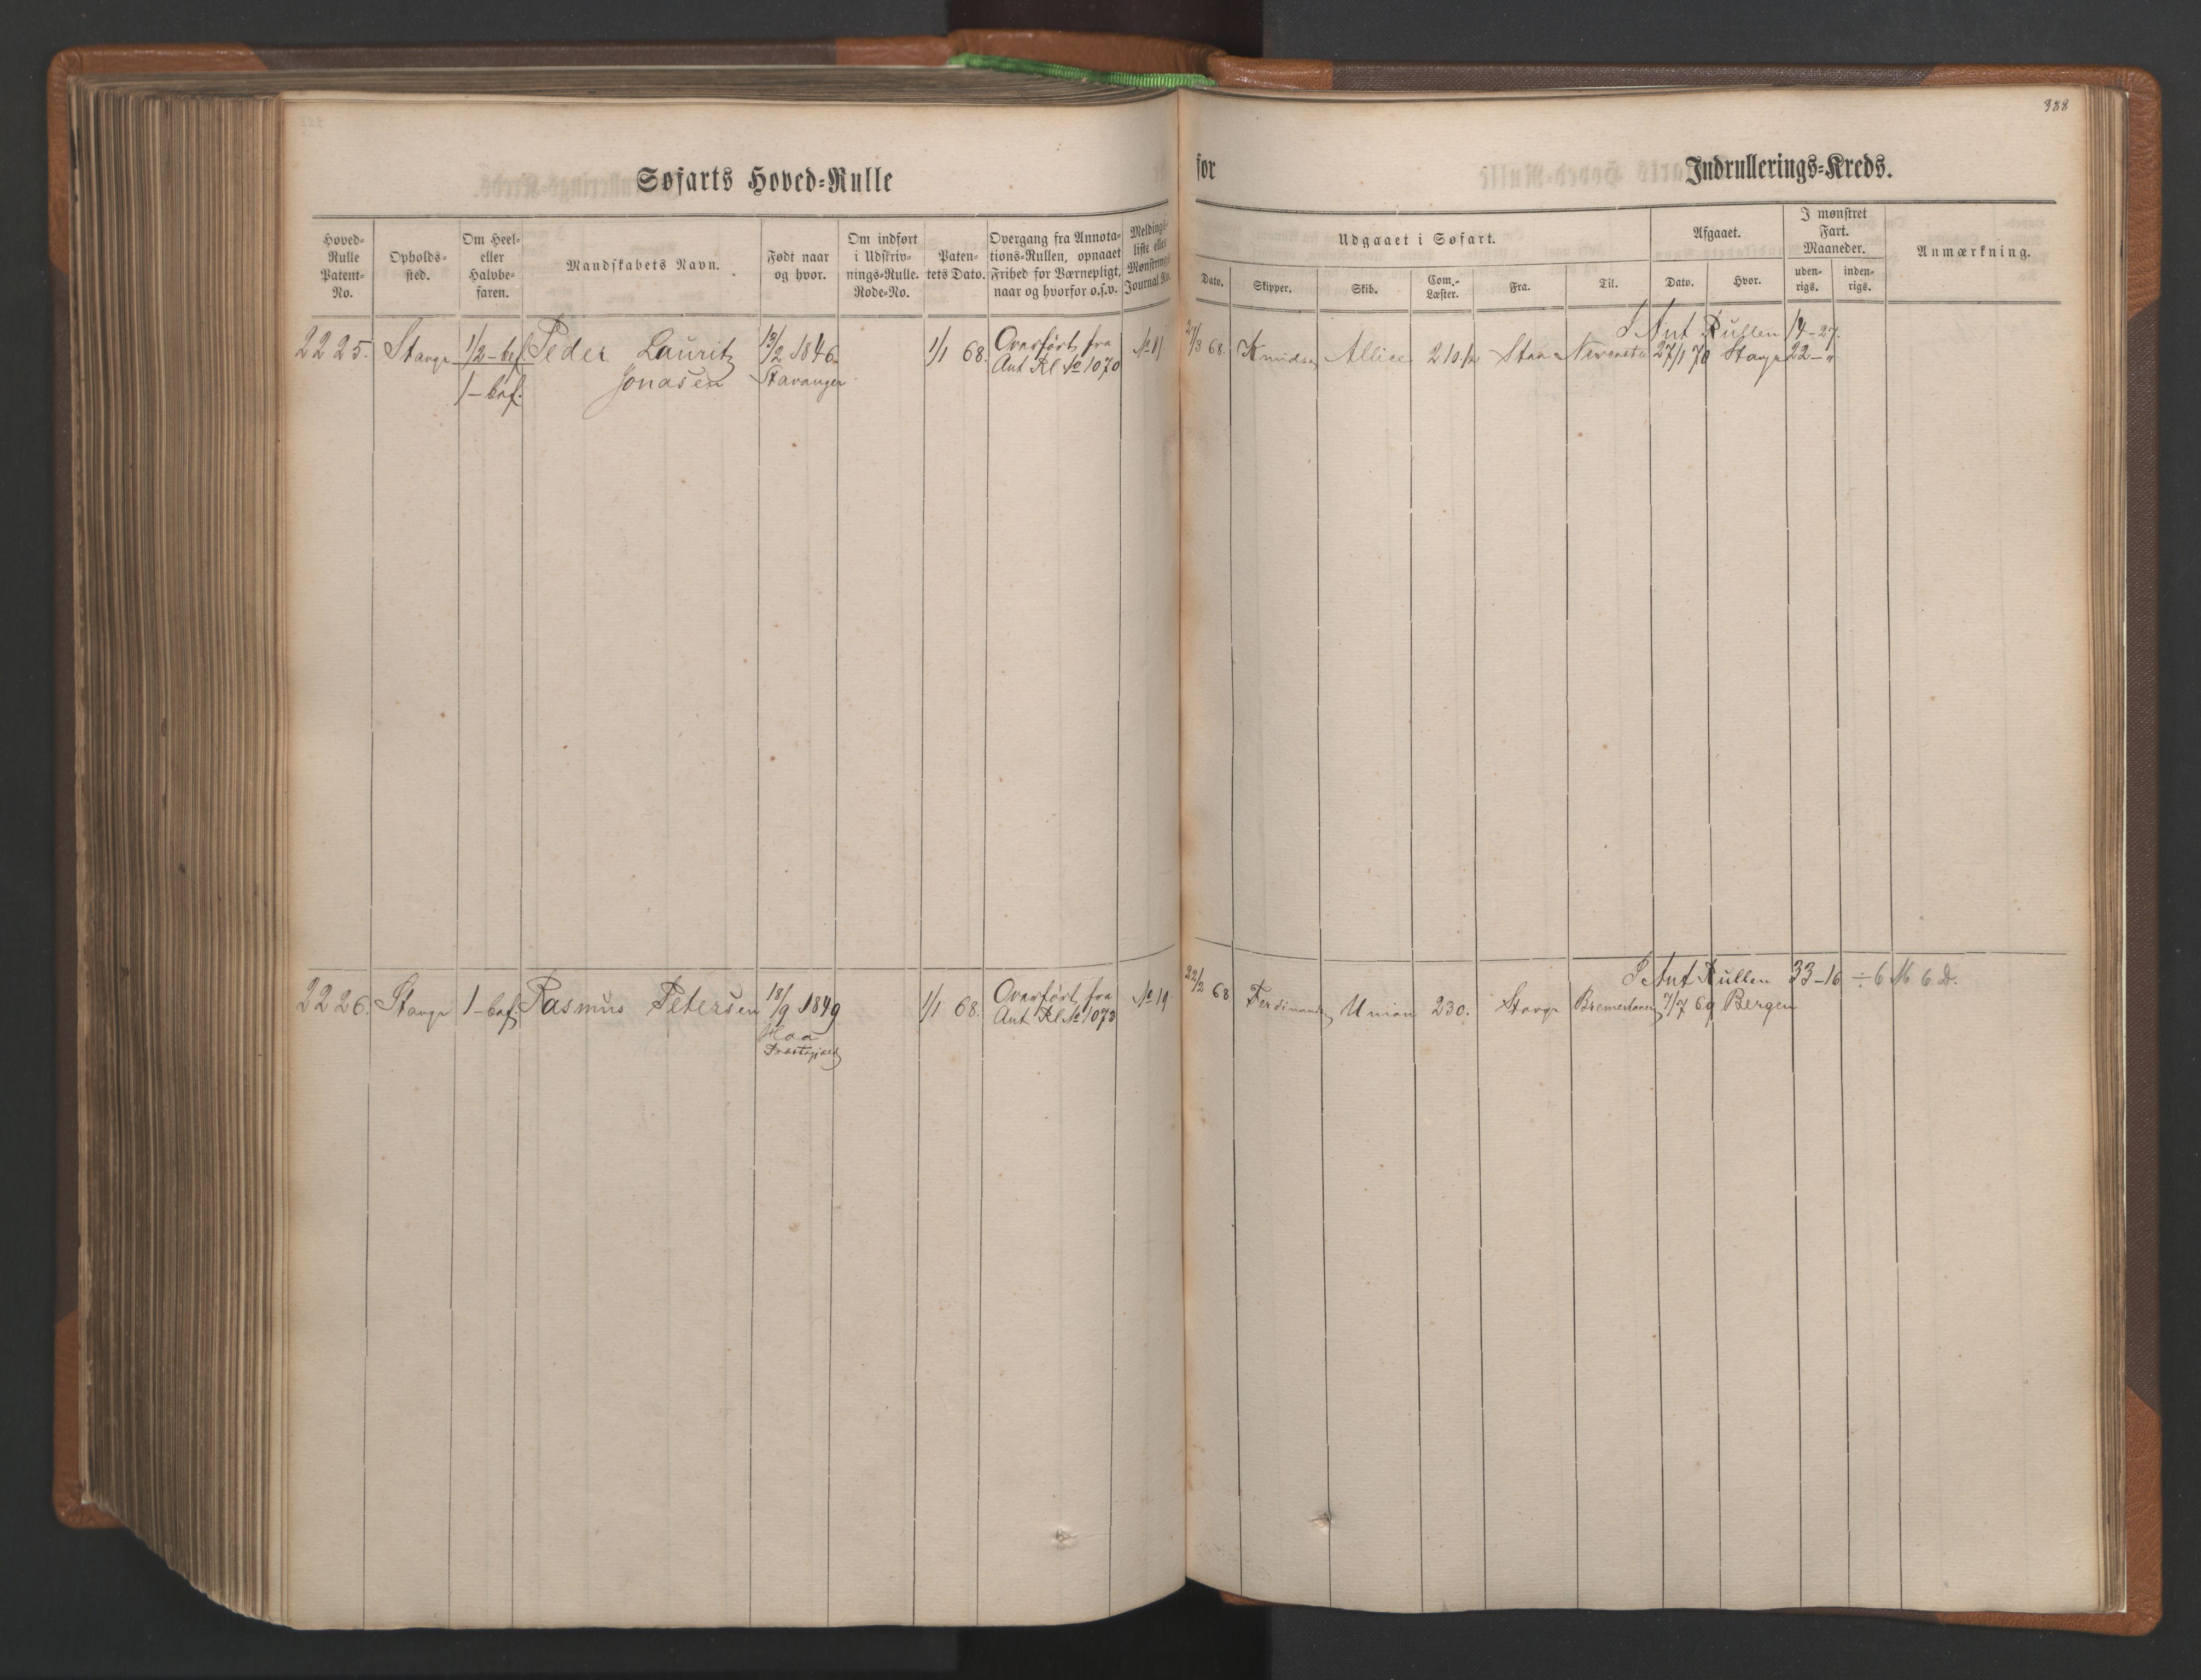 388
Søfarts Hoved-Rulle
for Indrullerings-Kreds.
Hoved-Rulle Patent-No.
Opholds-sted.
Om Heel- eller Halvbe-faren.
Mandskabets Navn.
Født naar og hvor.
Om indført i Udskriv-nings-Rulle. Rode-No.
Paten-tets Dato.
Overgang fra Annota-tions-Rullen, opnaaet Frihed for Værnepligt, naar og hvorfor o.s.v.
Meldings-liste eller Mønstrings-Journal No.
Udgaaet i Søfart.
Dato. Skipper. Skib. Com.-Læster. Fra. Til.
Afgaaet.
Dato. Hvor.
I mønstret Fart. Maaneder.
uden-rigs. inden-rigs.
Anmærkning.
I Ant Rullen 14-27.
2225. Stavgr 1/2-bef. Peder Lauritz 13/2 1846 1/1 68. Overført fra No 11 27/3 68. Knudsen Allice 210 1/2 Sta 27/1 70 Stavgr 22-"
1-bef. Jonasen Stavanger Ant Rl No 1070
I Ant Rullen 33-16 ÷ 6 M 6 D.
2226. Stavgr 1-bef. Rasmus Petersen 18/9 1849 1/1 68. Overført fra No 19 22/2 68 Union 230. Stavgr Bremerhaven 7/7 69 Bergen
Haa Ant Rl No 1073
Præstegjæld